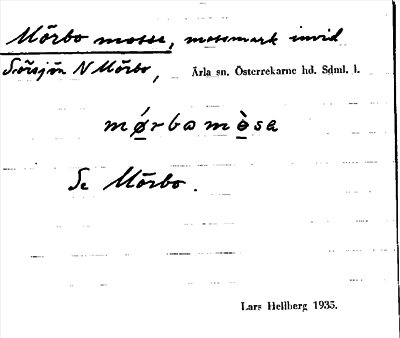 Mörbo mosse, mossmark invid
Storsjön N Mörbo, Ärla sn. Österrekarne hd. Sdml. l.
mǿrbamòsa
Se Mörbo.
Lars Hellberg 1935.